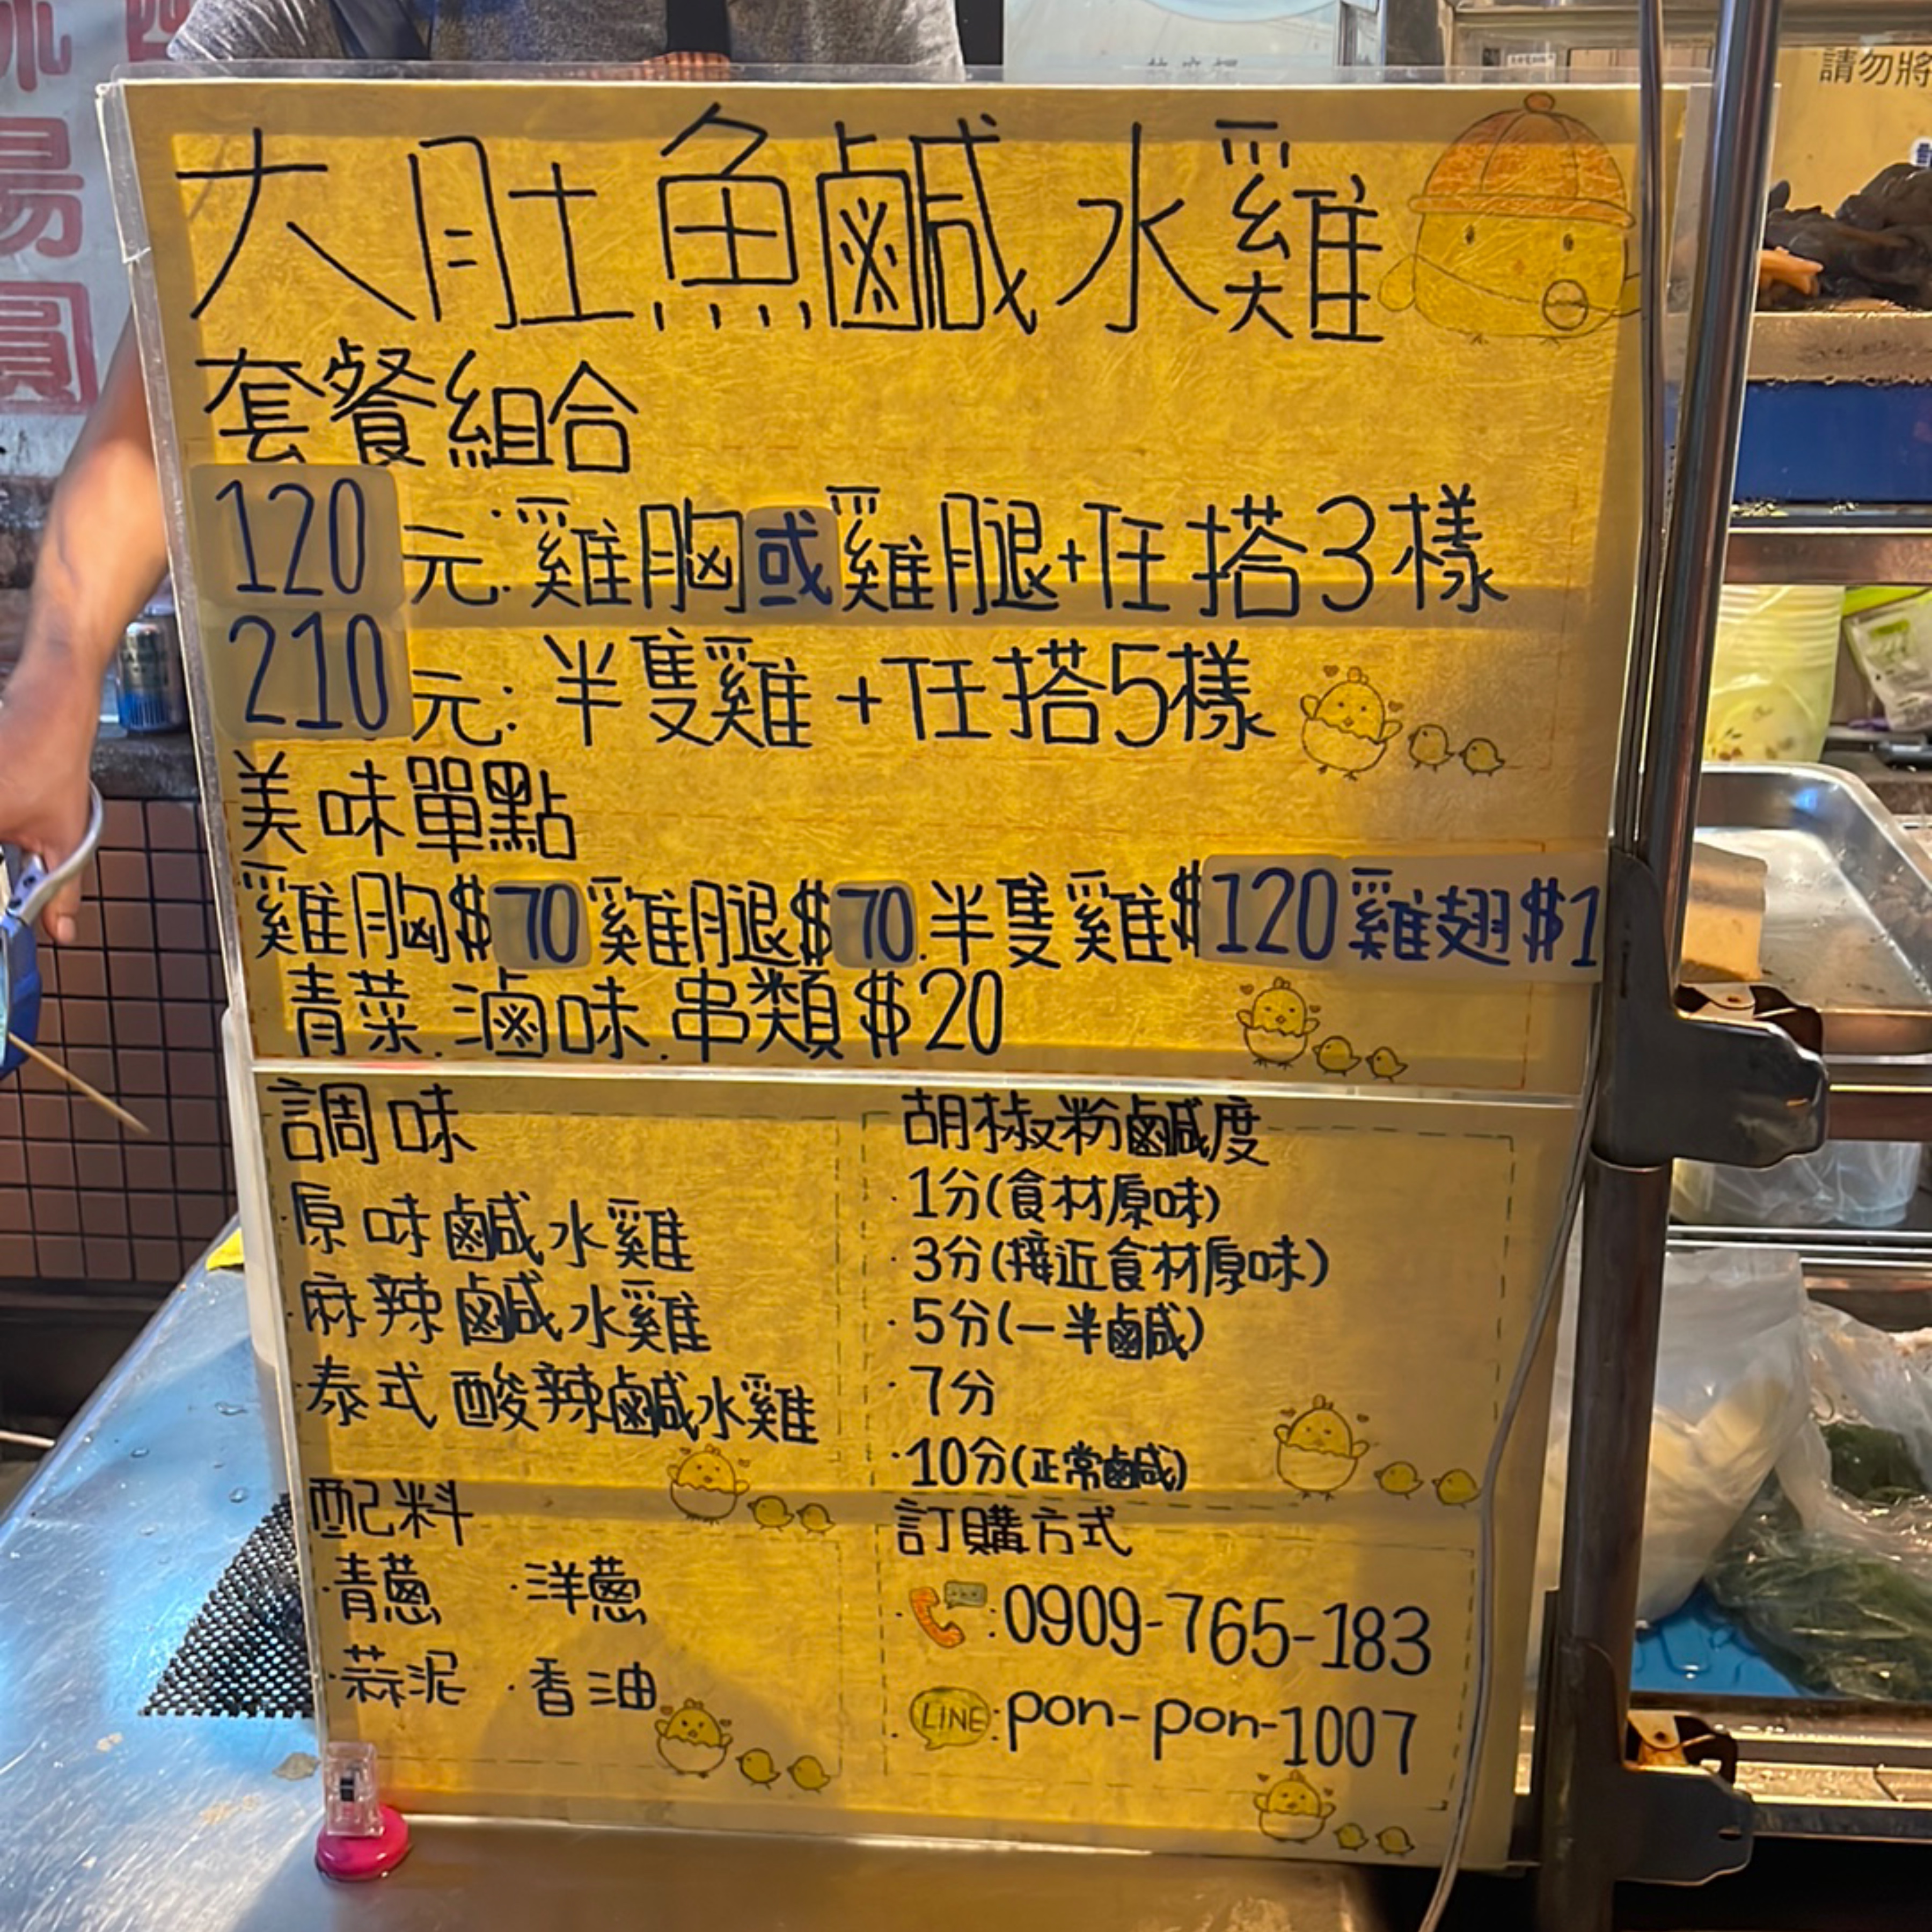 請勿將
大肚魚鹹水雞
套餐組合
120元:雞胸或雞腿+任搭3樣
210元:半隻雞+任搭5樣
美味單點
雞胸$70雞腿$70.半隻雞$120雞翅$1
青菜.滷味.串類$20
調味
·原味鹹水雞
·麻辣鹹水雞
·泰式酸辣鹹水雞
胡椒粉鹹度
·1分(食材原味)
·3分(接近食材原味)
·5分(一半鹹)
·7分
·10分(正常鹹)
配料
·青蔥 ·洋蔥
·蒜泥 ·香油
訂購方式
:0909-765-183
LINE:pon-pon-1007
湯圓